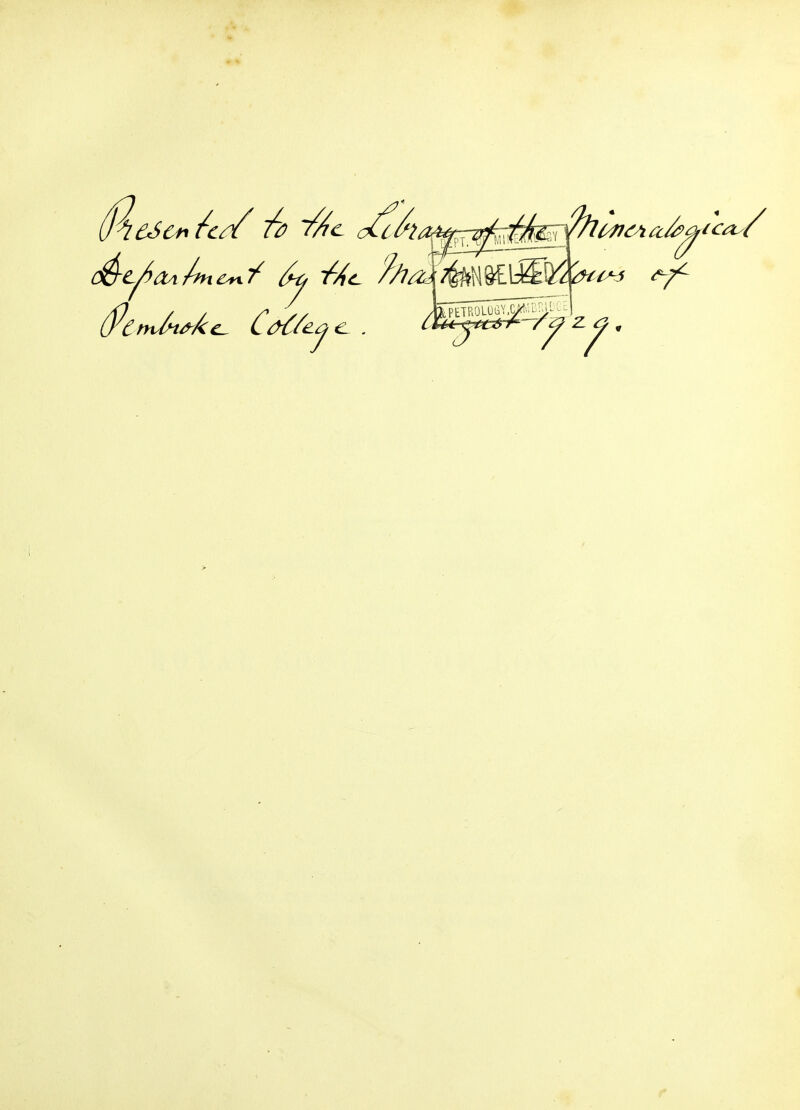 Presented to the Library of the Mineralogical
Department by the Master & Fellows of
Pembroke College. August 1929.
DEPT. MINERALOGY
CANCELLED
& PETROLOGY, CAMBRIDGE